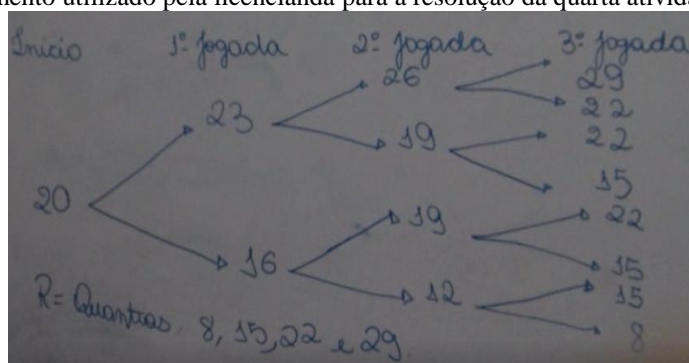 mento utilizado pela licencianda para a resolução da quarta ativida
Início 1º jogada 2º jogada 3º jogada
26 29
23 22
19 22
15
20
19 22
16 15
12 15
8
R= Quantias. 8, 15, 22 e 29.